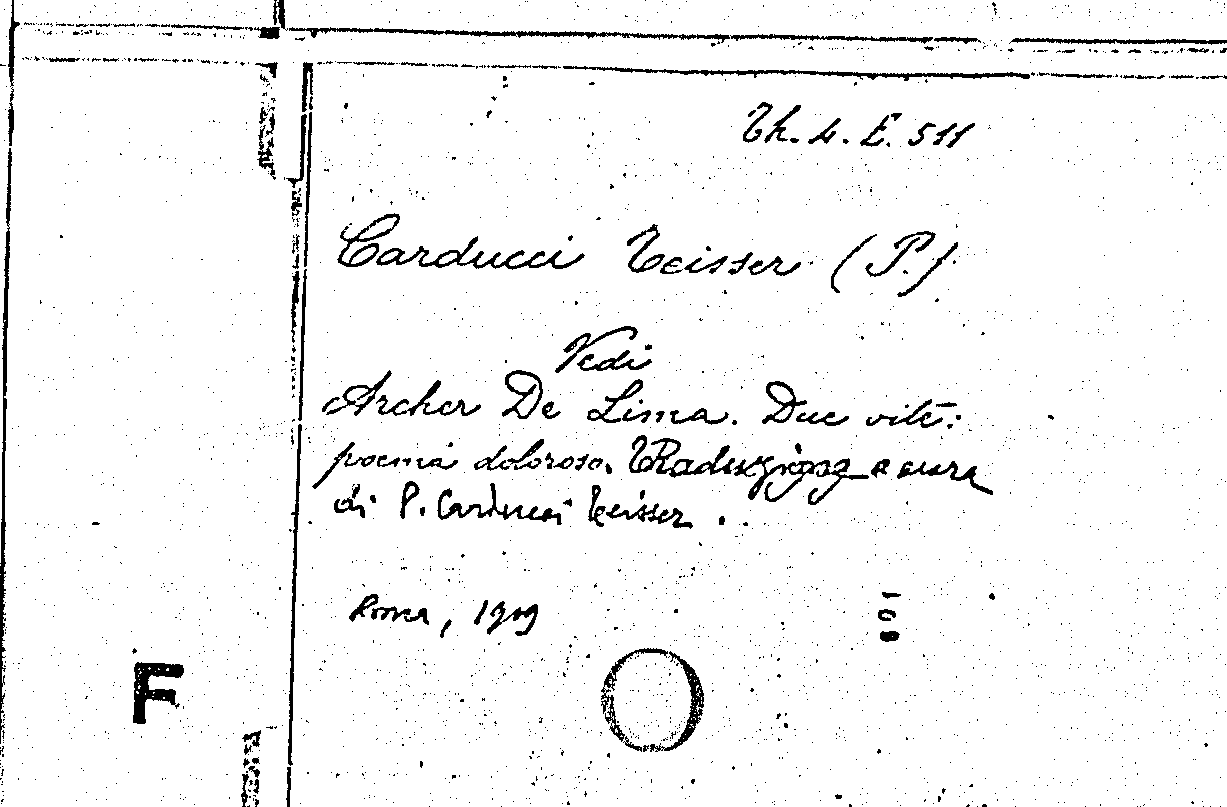 Th. 4. E. 511
Carducci Teisser (P.)
Vedi
Archer De Lima. Due vite:
poema doloroso. Traduzione a cura
di P. Carducci Teisser.
Roma, 1909
108
F